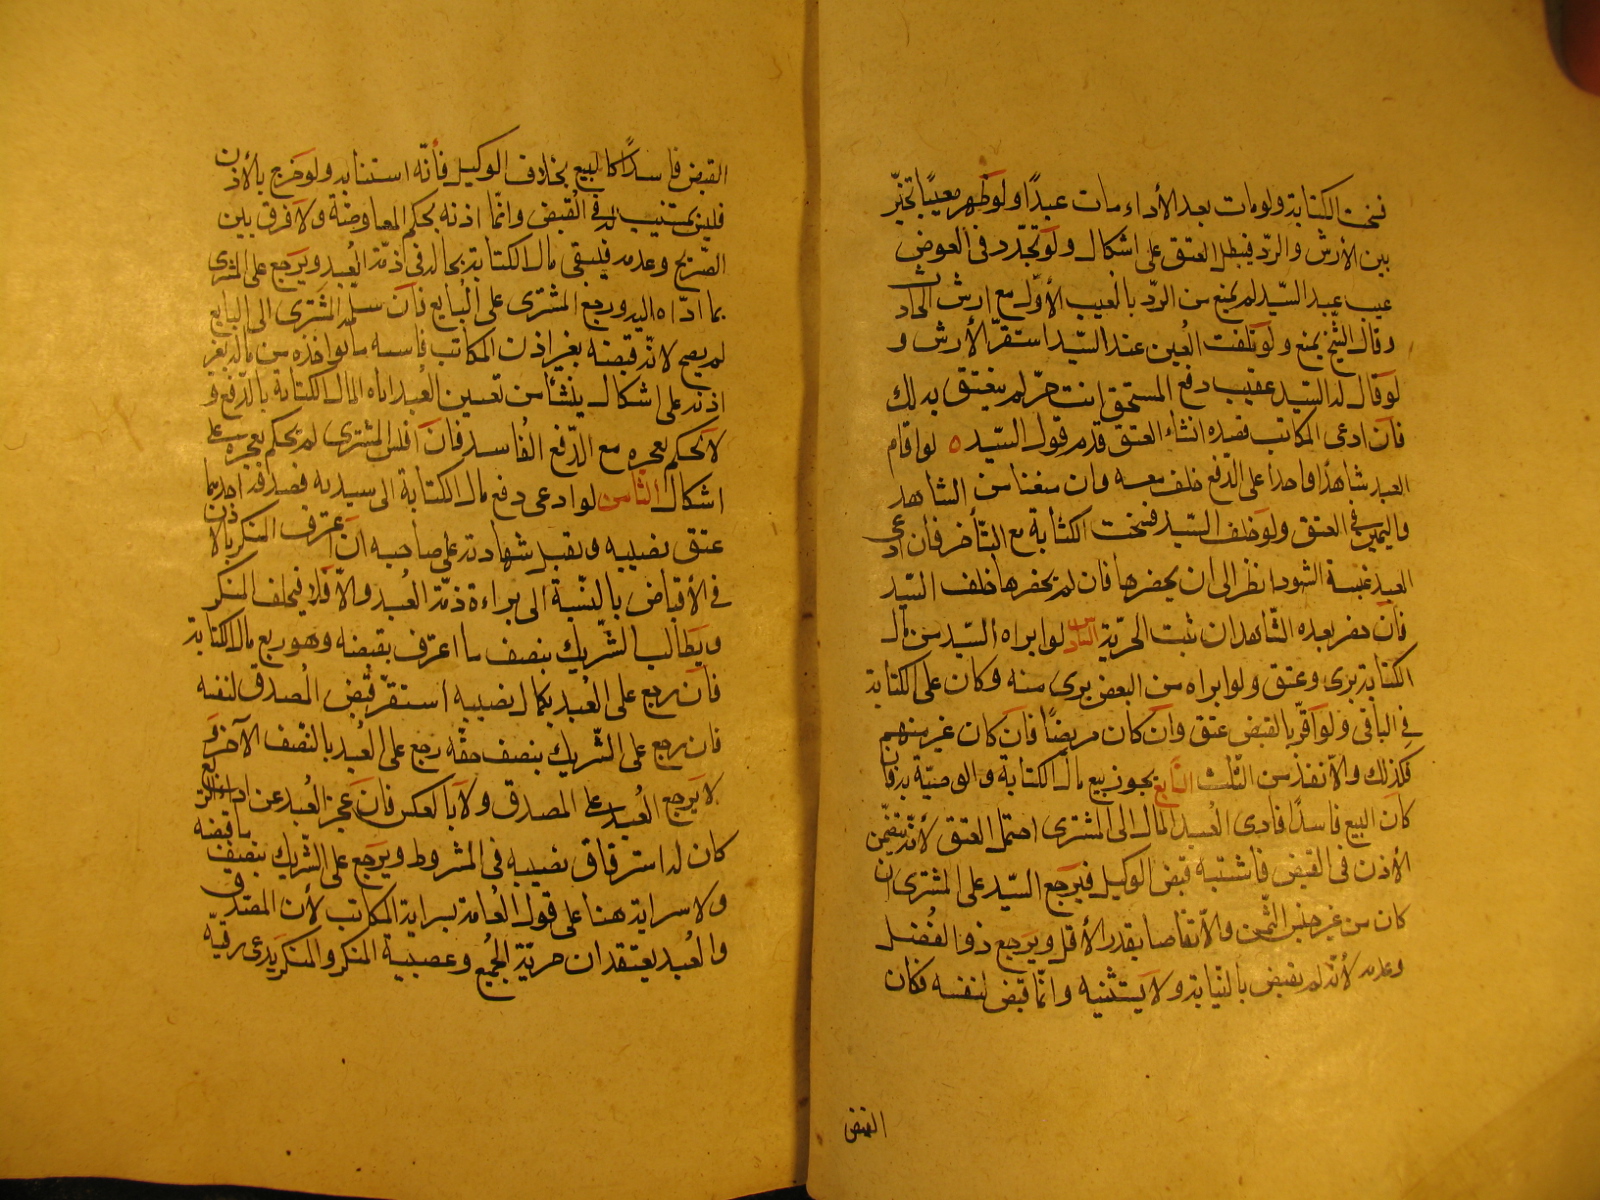 فسخت الكتابة ولو مات بعد الأداء مات عبدًا ولو ظهر معيبًا تخيّر
بين الأرش والردّ فيبطل العتق على اشكال ولو تجدّد فى العوض
عيب عبد السيّد لم يمنع من الردّ بالعيب الأوّل مع ارش الحادث
وقال الشيخ يمنع ولو تلفت العين عند السيّد استقرّ الأرش و
لو قال له السيّد عقيب دفع المستحق انت حرّ لم ينعتق بذلك
فان ادعى المكاتب قصده انشاء العتق قدم قول السيّد ه لو اقام
العبد شاهدًا واحدًا على الدفع حلف معه وان منعنا من الشاهد
واليمين فى العتق ولو حلف السيّد فسخت الكتابة مع التأخر فان ادعى
العبد غيبة الشهود انظر الى ان يحضرها فان لم يحضرها حلف السيّد
فان حضر بعده الشاهدان ثبت الحريّة السّادس لو ابراه السيّد من مال
الكتابة برئ وعتق ولو ابراه من البعض برئ منه وكان على الكتابة
في الباقى ولو اقرّ بالقبض عتق وان كان مريضًا فان كان غير متهم
فكذلك والا نفذ من الثلث السّابع يجوز بيع مال الكتابة والوصيّة به فان
كان البيع فاسدًا فادى العبد المال الى المشترى احتمل العتق لأنّه تضمّن
الأذن فى القبض فاشتبه قبض الوكيل فيرجع السيّد على المشترى ان
كان من غير جنس الثمن والّا تقاصا بقدر الأقل ويرجع ذو الفضل
وعدمه لأنّه لم يقبض بالنيابة ولا يستنيبه وانّما قبض لنفسه فكان
القبض
القبض فاسدًا كالبيع بخلاف الوكيل فأنّه استنابه ولو خرج بالأذن
فليس بمستنيب له في القبض وانّما اذنه بحكم المعاوضة ولا فرق بين
الصّريح وعدمه فيبقى مال الكتابة بحاله فى ذمّة العبد ويرجع على المشترى
بما ادّاه اليه ورجع المشترى على البايع فان سلمه المشترى الى البايع
لم يصح لانّه قبضه بغير اذن المكاتب فاسبه مالو اخذه من ماله بغير
اذنه على اشكال ينشأ من تعيين العبد اياه لمال الكتابة بالدفع و
لا يحكم بعجزه مع الدّفع الفاسد فان فلس المشترى لم يحكم بعجزه على
اشكال الثّامن لو ادعى دفع مال الكتابة الى سيديه فصدقه احدهما
عتق نصيبه وتقبل شهادته على صاحبه ان اعترف المنكر بالاذن
في الأقباض بالنسبة الى براءة ذمّة العبد والّا فلا فيحلف المنكر
ويطالب الشّريك بنصف ما اعترف بقبضه وهو ربع مال الكتابة
فان رجع على العبد بكمال نصيبه استقرّ قبض المصدق لنفسه
فان رجع على الشّريك بنصف حقّه رجع على العبد بالنصف الآخر و
لا يرجع العبد على المصدق ولا بالعكس فان عجز العبد عن اداء الربع
كان له استرقاق نصيبه فى المشروط ويرجع على الشّريك بنصف ما قبضه
ولا سراية هنا على قول العامة بسراية المكاتب لأن المصدق
والعبد يعتقدان حريّة الجميع وعصبية المنكر والمنكر يدعى رقيّه